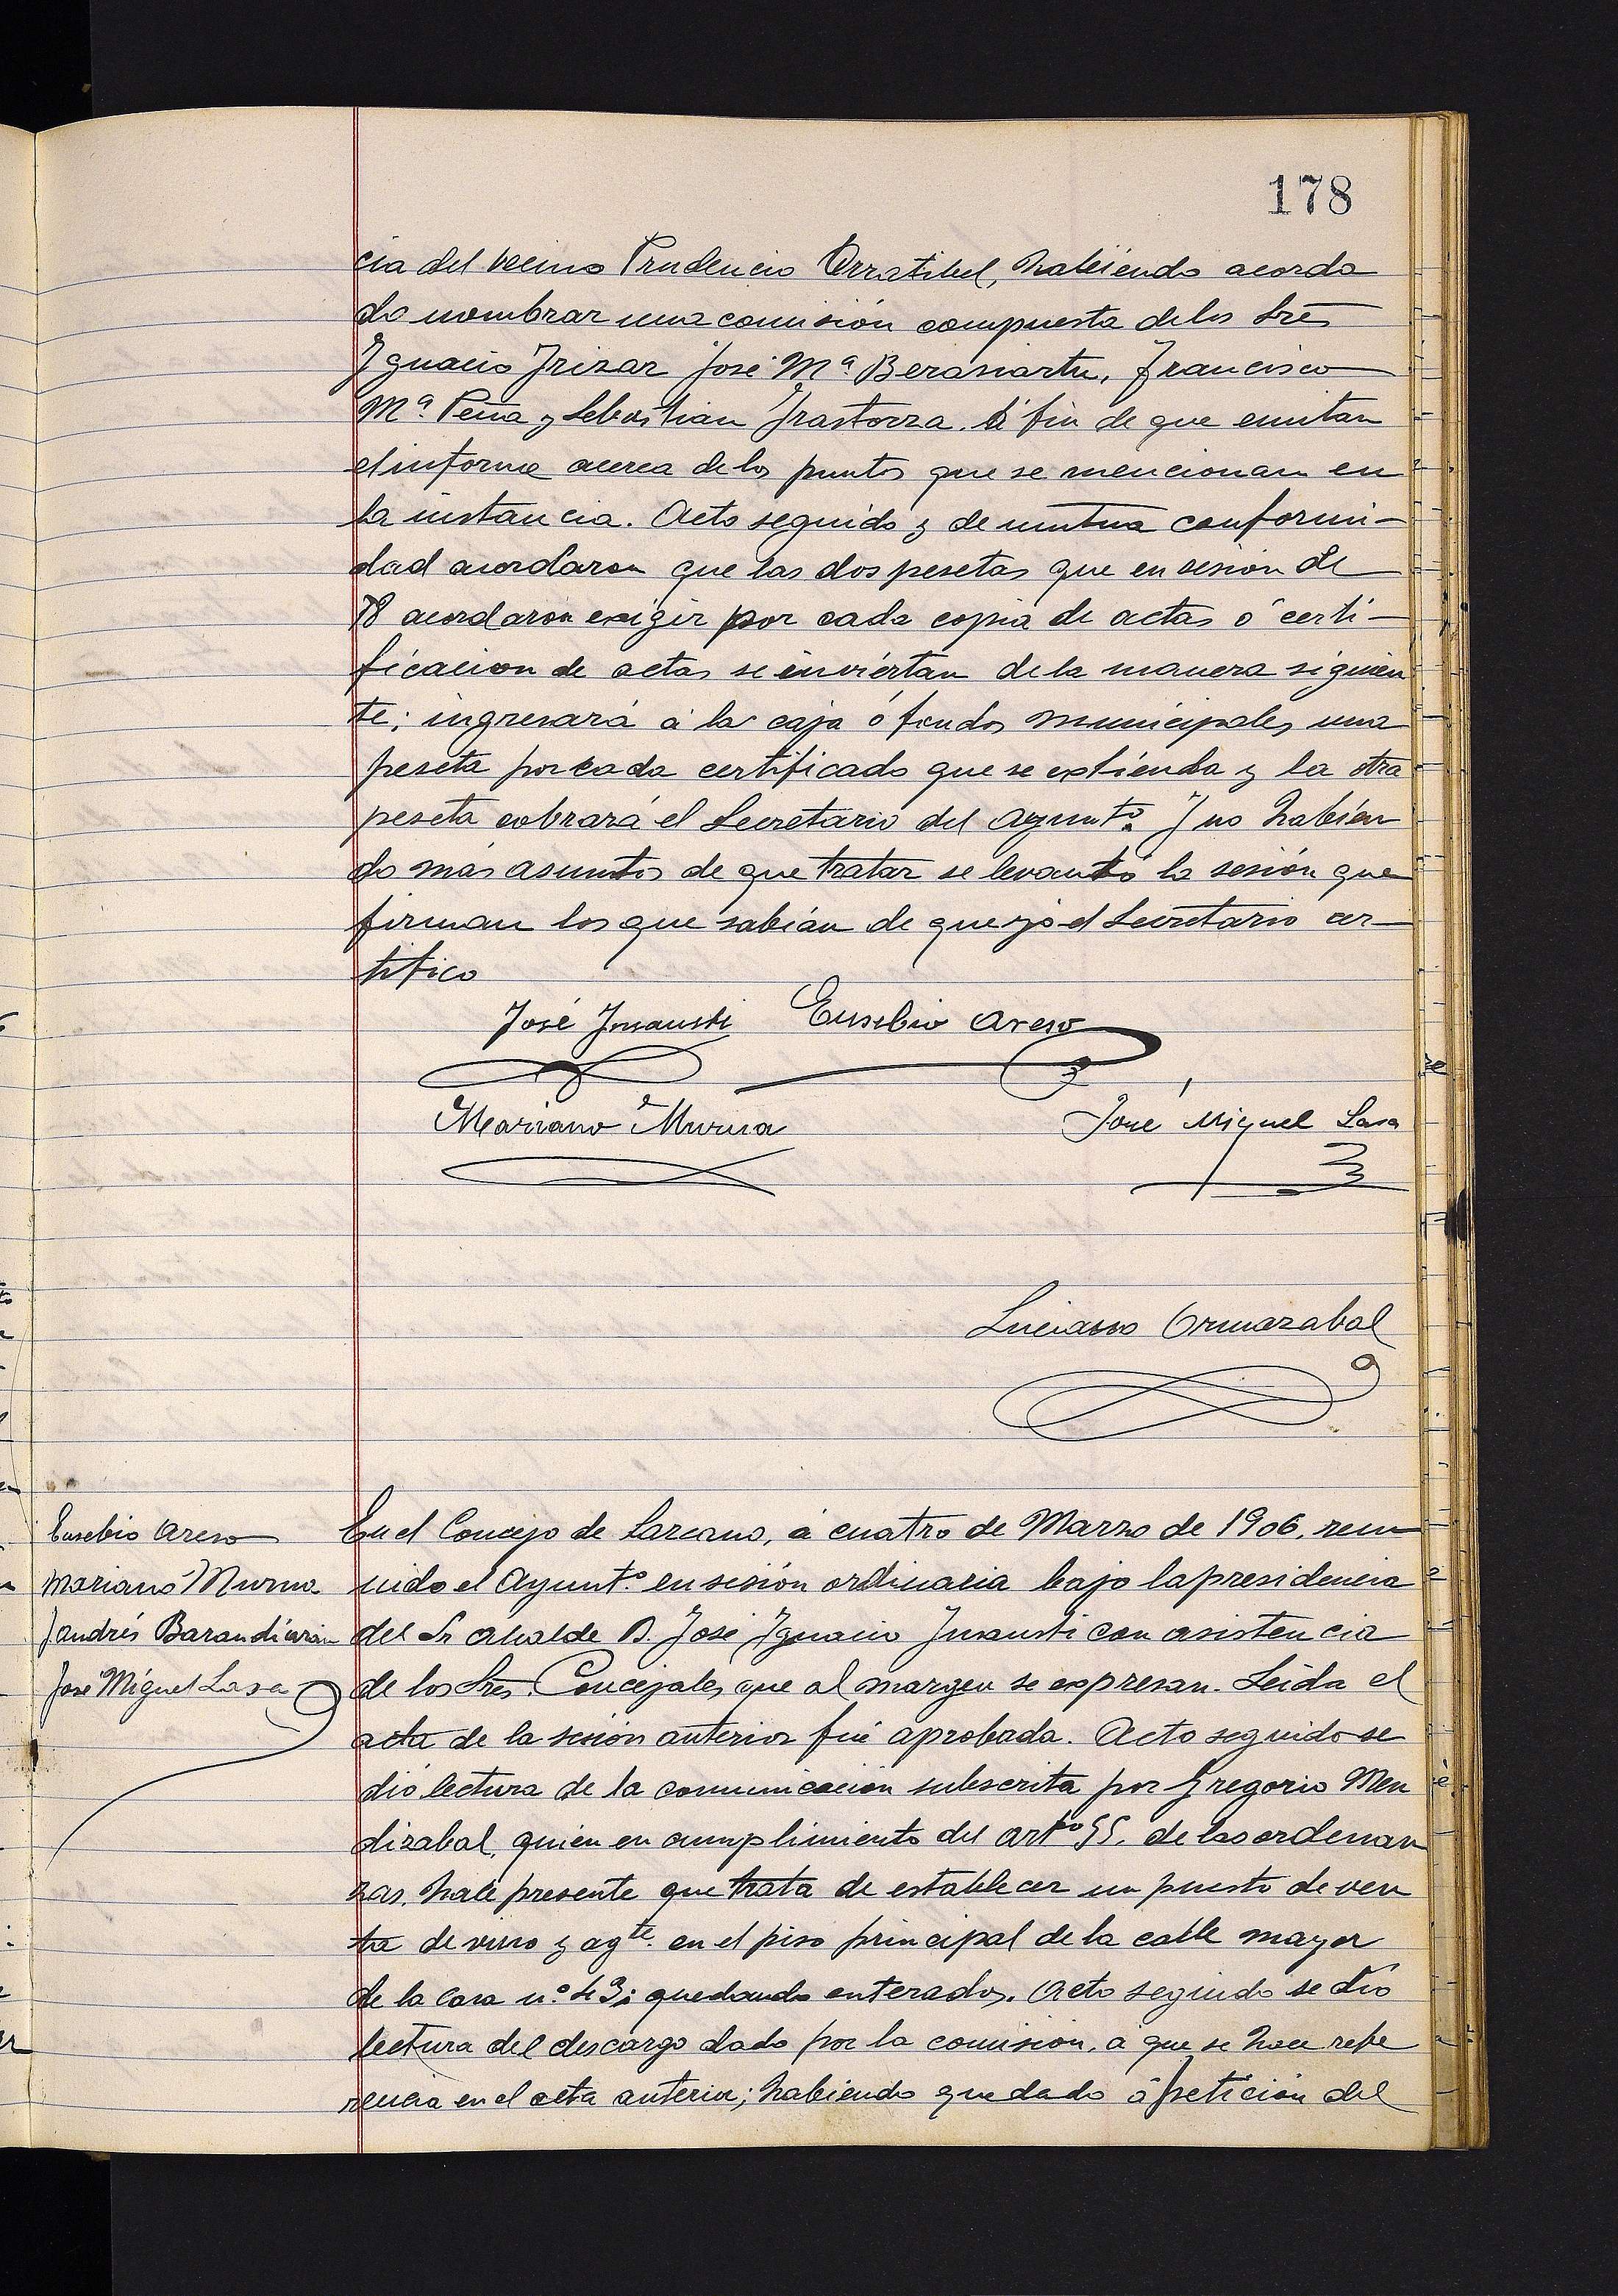 178
cia del vecino Prudencio Urratibel, habiendo acorda
do nombrar una comisión compuesta delos Sres
Ignacio Irizar José Mª Berasiartu, Francisco
Mª Peña y Sebastian Irastorza. á fin de que emitan
el informe acerca de los puntos que se mencionan en
la instancia. Acto seguido y de mutua conformi-
dad acordaron que las dos pesetas que en sesión de
18 acordaron exigir por cada copia de actas ó certi-
ficacion de actas se inviertan de la manera siguien
te; ingresará á la caja ó fondos municipales una
peseta por cada certificado que se extienda y la otra
peseta cobrará el Secretario del Ayuntº. Y no habien
do más asuntos de que tratar se levantó la sesión que
firman los que sabían de que yo el Secretario cer-
tifico
José Insausti Eusebio Areso
Mariano Murua José Miguel Lasa
Luciano Ormazabal
Eusebio Areso
Mariano Murua
J Andrés Barandiarán
José Miguel Lasa
En el Concejo de Lazcano, á cuatro de Marzo de 1906, reu
nido el Ayuntº. en sesión ordinaria bajo la presidencia
del Sr Alcalde D. José Ignacio Insausti con asistencia
de los Sres. Concejales que al margen se expresan. Leida el
acta de la sesión anterior fué aprobada. Acto seguido se
dió lectura de la comunicación subscrita por Gregorio Men
dizabal, quien en cumplimiento del artto 55. de las ordenan
zas, hace presente que trata de establecer un puesto de ven
ta de vino y agte. en el piso principal de la calle mayor
de la casa nº 43; quedando enterados. Acto seguido se dió
lectura del descargo dado por la comisión, á que se hace refe
rencia en el acta anterior; habiendo quedado á petición del